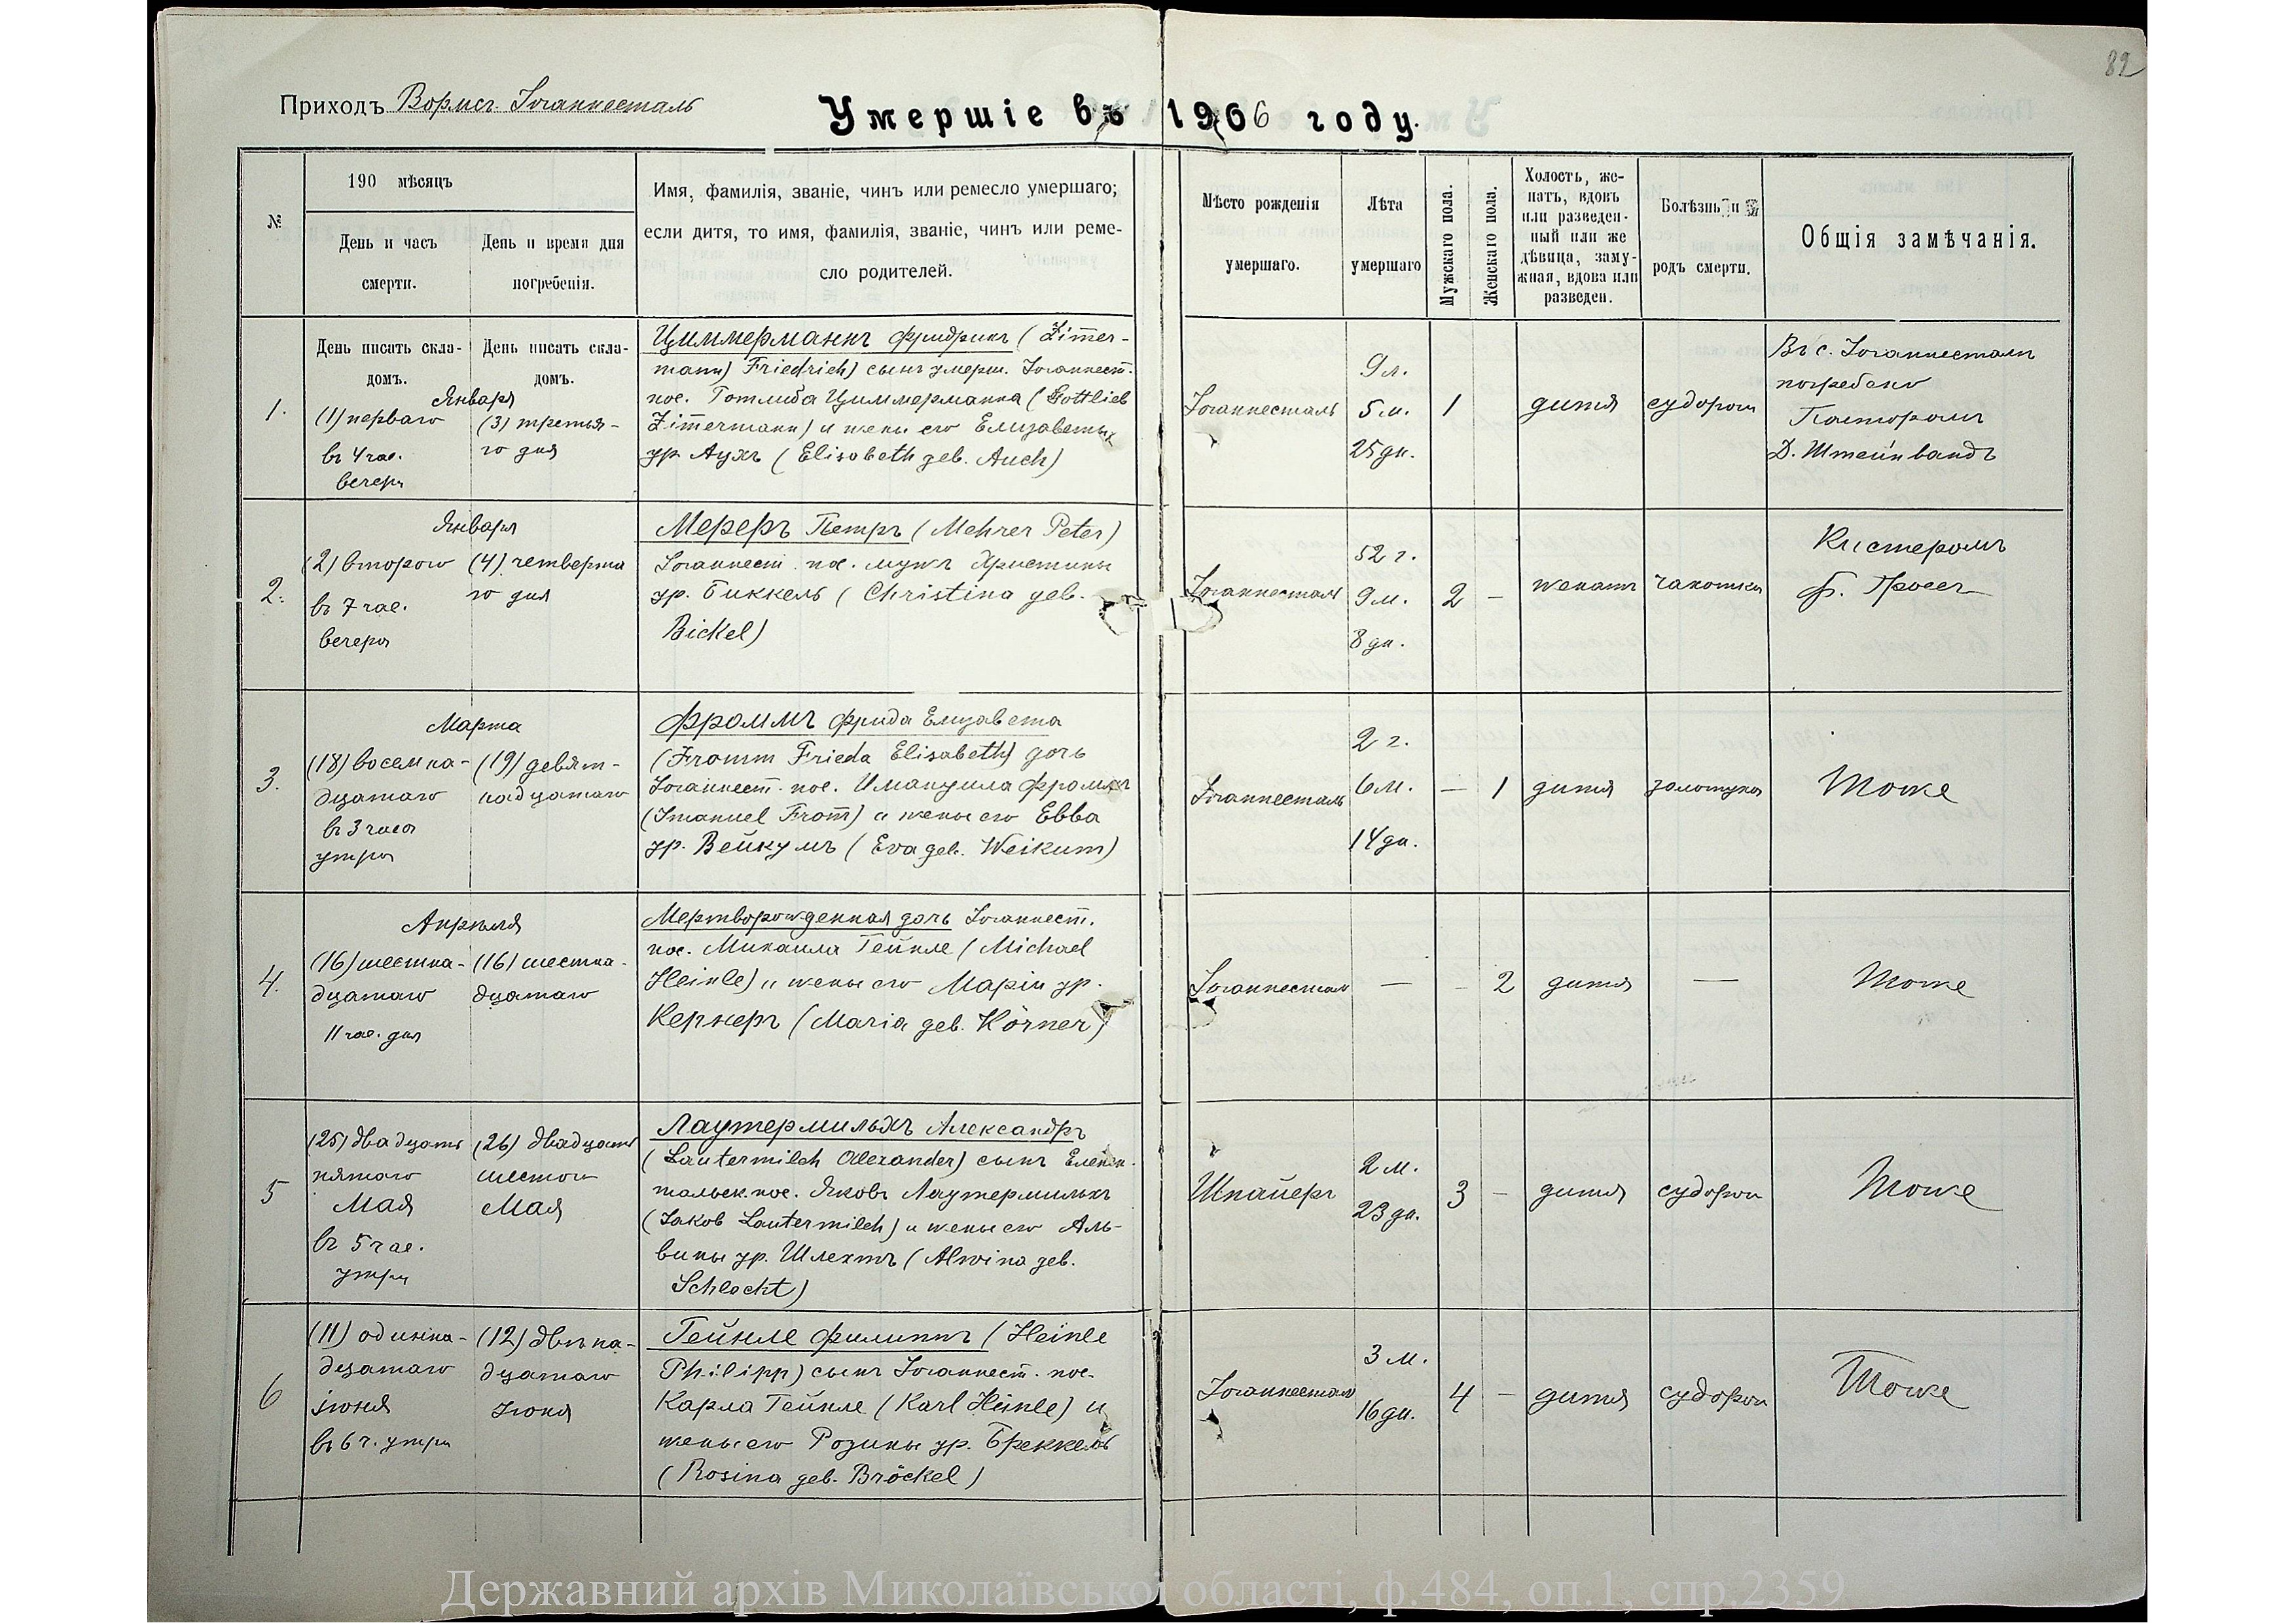 82
Приходъ Вормсъ. Іоганнесталь
Умершіе въ 1906 году.
№
190 мѣсяцъ
День и часъ
смерти.
День и время дня
погребенія.
Имя, фамилія, званіе, чинъ или ремесло умершаго;
если дитя, то имя, фамилія, званіе, чинъ или реме-
сло родителей.
Мѣсто рожденія
умершаго.
Лѣта
умершаго
Мужскаго пола.
Женскаго пола.
Холостъ, же-
натъ, вдовъ
или разведен-
ный или же
дѣвица, заму-
жная, вдова или
разведен.
Болѣзнь и
родъ смерти.
Общія замѣчанія.
День писать скла-
домъ.
День писать скла-
домъ.
1.
Января
(1) перваго
въ 4 час.
вечера
(3) третья-
го дня
Циммерманнъ Фридрихъ (Zim̄er-
mann) Friedrich) сынъ умерш. Іоганнест.
пос. Готлиба Циммерманна (Gottlieb
Zim̄ermann) и жены его Елизаветы
ур. Аухъ (Elisabeth geb. Auch)
Іоганнесталь
9 л.
5 м.
25 дн.
1
дитя
судороги
Въ с. Іоганнесталь
погребено
Пасторомъ
Д. Штейнвандъ
2.
Января
(2) второго
въ 7 час.
вечера
(4) четверта
го дня
Мереръ Петръ (Mehrer Peter)
Іоганнест. пос. мужъ Христины
ур. Биккель (Christina geb.
Bickel)
Іоганнесталь
52 г.
9 м.
8 дн.
2 -
женатъ
чахотка
Кистеромъ
Ф. Гроссъ
3.
Марта
(18) восемна-
дцатаго
въ 3 часа
утра
(19) девят-
надцатаго
Фроммъ Фрида Елизавета
(Fromm Frieda Elisabeth) дочь
Іоганнест. пос. Имануила Фроммъ
(Imanuel From̄) и жены его Евва
ур. Вейкумъ (Eva geb. Weikum)
Іоганнесталь
2 г.
6 м.
14 дн.
- 1
дитя
золотуха
Тоже
4.
Апрѣля
(16) шестна-
дцатаго
11 час. дня
(16) шестна-
дцатаго
Мертворожденная дочь Іоганнест.
пос. Михаила Гейнле (Michael
Heinle) и жены его Маріи ур.
Кернеръ (Maria geb. Körner)
Іоганнесталь
—
- 2
дитя
—
Тоже
5
(25) двадцать
пятаго
Мая
въ 5 час.
утра
(26) двадцать
шестого
Мая
Лаутермильхъ Александръ
(Lautermilch Alexander) сынъ Еленен-
тальск. пос. Яковъ Лаутермильхъ
(Jakob Lautermilch) и жены его Аль-
вины ур. Шлехтъ (Alwina geb.
Schlecht)
Шпайеръ
2 м.
23 дн.
3 -
дитя
судороги
Тоже
6
(11) одинна-
дцатаго
іюня
въ 6 ч. утра
(12) двѣна-
дцатаго
Іюня
Гейнле Филиппъ (Heinle
Philipp) сынъ Іоганнест. пос.
Карла Гейнле (Karl Heinle) и
жены его Розины ур. Бреккель
(Rosina geb. Bröckel)
Іоганнесталь
3 м.
16 дн.
4 -
дитя
судороги
Тоже
Державний архів Миколаївської області, ф.484, оп.1, спр.2359